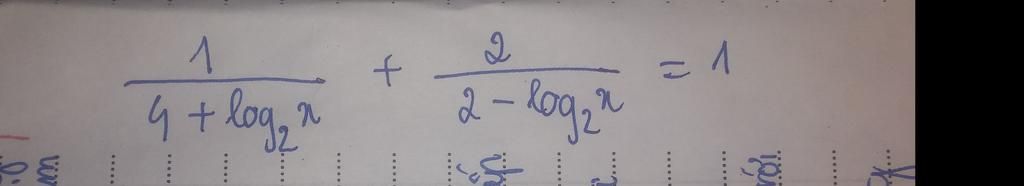 1/(4 + log₂x) + 2/(2 - log₂x) = 1